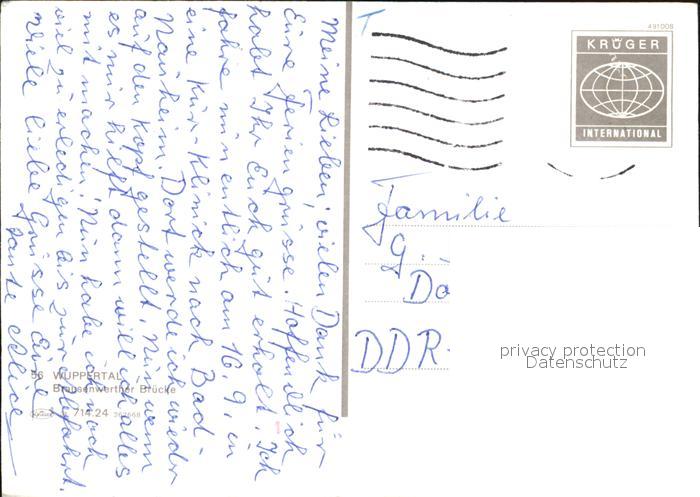 Meine Lieben, vielen Dank für
Eure Feriengrüsse. Hoffendlich
habt Ihr Euch gut erholt. Ich
fahre nun entlich am 16.9. in
eine Kur-Klinick nach Bad
Nauheim. Dort werde ich wieder
auf den Kopf gestellt. Nun wenn
es mir hilft dann will ich alles
mit machen. Nun habe ich noch
viel zu erledigen bis zur Abfahrt.
Viele liebe Grüsse Eure
Tante Alice
56 WUPPERTAL
Brausenwerther Brücke
Krüger 714.24
T
491008
KRÜGER
INTERNATIONAL
Familie
G.
Do
DDR.
privacy protection
Datenschutz